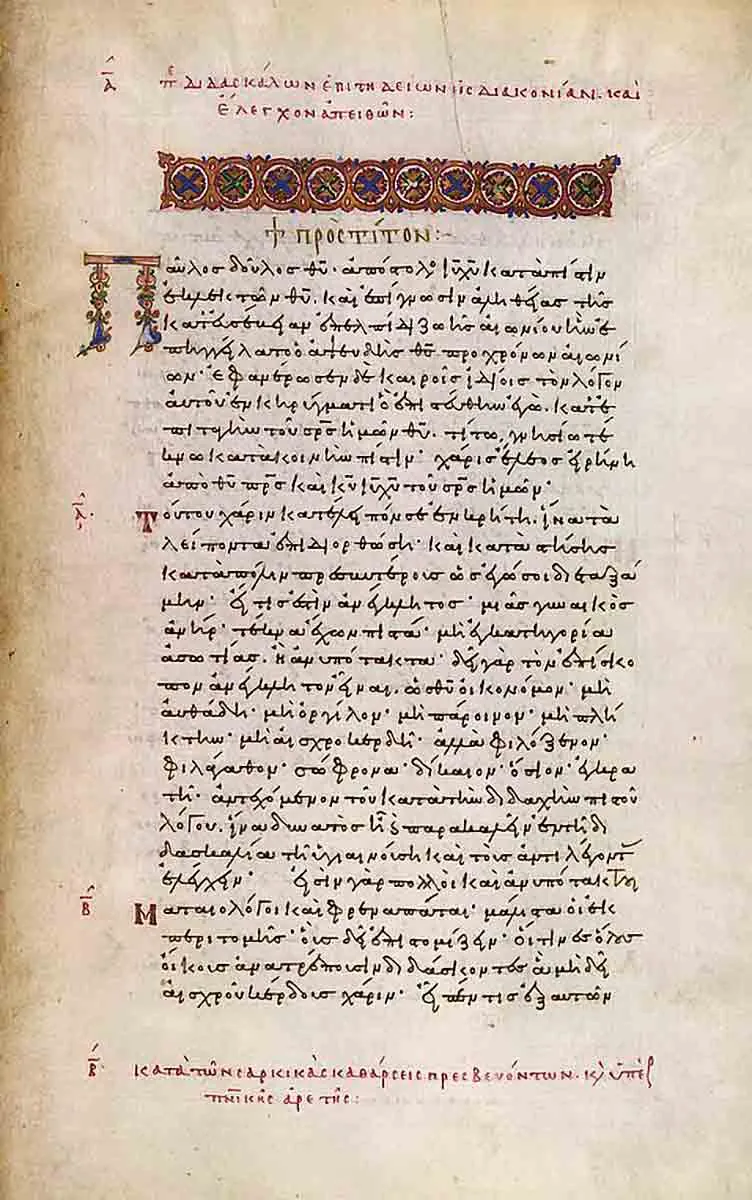 Α̅ π^ε διδασκάλων ἐπιτηδείων εἰς διακονίαν. καὶ
ἔλεγχον ἀπειθῶν:
ΠΡΟΣ ΤΙΤΟΝ:-
Παῦλος δοῦλος θ̅υ̅· ἀπόστολο^ς ἰ̅υ̅ χ̅υ̅ κατὰ πίστιν
ἐκλεκτῶν θ̅υ̅. καὶ ἐπίγνωσιν ἀληθείας τῆς
κατ' εὐσέβειαν ἐπ' ἐλπίδι ζωῆς αἰωνίου ἣν ἐ
πηγγείλατο ὁ ἀψευδὴς θ̅ς̅ πρὸ χρόνων αἰωνί
ων· ἐφανέρωσεν δὲ καιροῖς ἰδίοις τὸν λόγον
αὐτοῦ ἐν κηρύγματι ὃ ἐπιστεύθην ἐγώ. κατ' ἐ
πιταγὴν τοῦ σ̅ρ̅ς̅ ἡμῶν θ̅υ̅. τίτω, γνησίω τέ
κνω κατὰ κοινὴν πίστιν· χάρις ἔλεος εἰρήνη
ἀπὸ θ̅υ̅ π̅ρ̅ς̅ καὶ κ̅υ̅ ἰ̅υ̅ χ̅υ̅ τοῦ σ̅ρ̅ς̅ ἡμῶν·
Α̅ Τούτου χάριν κατέλειπόν σε ἐν κρήτη. ἵνα τὰ
λείποντα ἐπιδιορθώση· καὶ καταστήσης
κατὰ πόλιν πρεσβυτέρους ὡς ἐγώ σοι διεταξά
μην· εἴ τις ἐστὶν ἀνέγκλητος· μιᾶς γυναικὸς
ἀνήρ· τέκνα ἔχων πιστά· μὴ ἐν κατηγορία
ἀσωτίας. ἢ ἀνυπότακτα· δεῖ γὰρ τὸν ἐπίσκο
πον ἀνέγκλητον εἶναι. ὡς θ̅υ̅ οἰκονόμον· μὴ
αὐθάδη· μὴ ὀργίλον· μὴ πάροινον· μὴ πλή
κτην· μὴ αἰσχροκερδῆ· ἀλλὰ φιλόξενον·
φιλάγαθον· σώφρονα· δίκαιον· ὅσιον· ἐγκρα
τῆ· ἀντεχόμενον τοῦ κατὰ τὴν διδαχὴν πιστοῦ
λόγου. ἵνα δυνατὸς ἦ καὶ παρακαλεῖν ἐν τῆ δι
δασκαλία τῆ ὑγιαινούση καὶ τοὺς ἀντιλέγοντ
ἐλέγχειν· εἰσὶν γὰρ πολλοὶ καὶ ἀνυπότακτοι
Β̅ Ματαιολόγοι καὶ φρεναπάται· μάλιστα οἱ ἐκ
περιτομῆς· οὓς δεῖ ἐπιστομίζειν· οἵτινες ὅλους
οἴκους ἀνατρέπουσιν διδάσκοντες ἃ μὴ δεῖ
αἰσχροῦ κέρδους χάριν· εἶπέν τις ἐξ αὐτῶν
Β̅ κατὰ τῶν σαρκικὰς καθάρσεις πρεσβευόντων. κ̀ ὑπὲρ
π̅ν̅ικῆς ἀρετῆς: